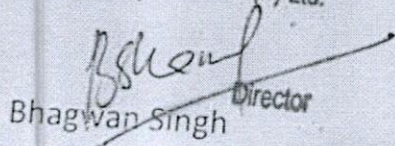 Ltd.
Director
Bhagwan Singh